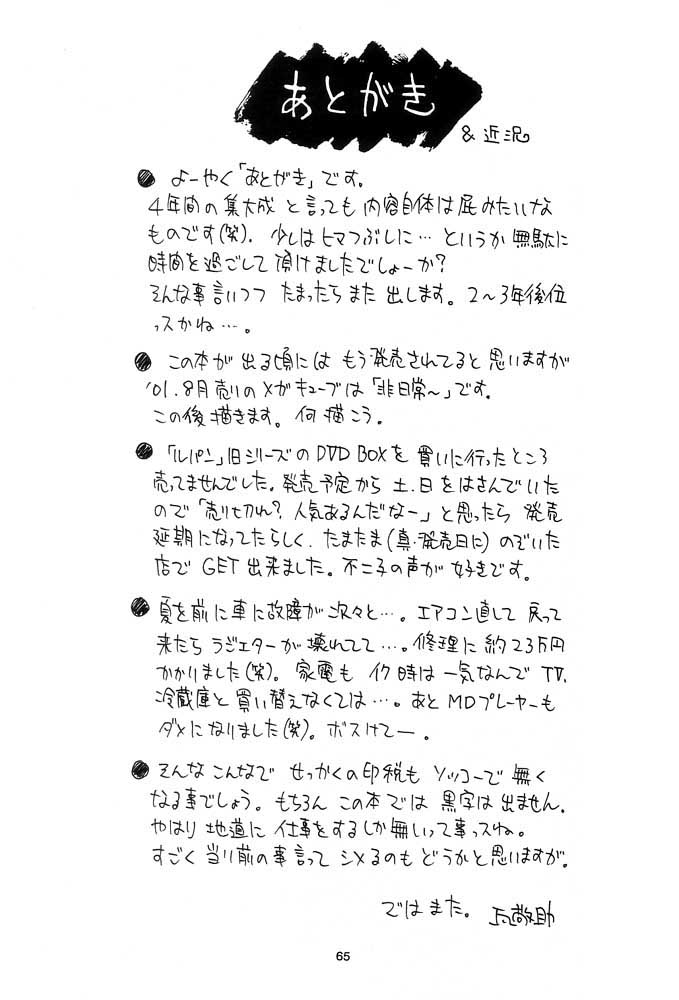 あとがき
&近況
● よーやく「あとがき」です。
4年間の集大成 と言っても 内容自体は屁みたいな
ものです(笑)。少しはヒマつぶしに… というか 無駄に
時間を過ごして頂けましたでしょーか?
そんな事言いつつ たまったら また 出します。2〜3年後位
っスかね…。
● この本が 出る頃には もう発売されてると思いますが
'01.8月売りのメガキューブは「非日常〜」です。
この後描きます。何描こう。
● 「ルパン」旧シリーズのDVD BOXを 買いに行ったところ
売ってませんでした。発売予定から 土、日をはさんでいた
ので「売り切れ?人気あるんだなー」と思ったら 発売
延期になってたらしく、たまたま(真・発売日に)のぞいた
店で GET出来ました。不二子の声が 好きです。
● 夏を前に車に故障が次々と…。エアコン直して 戻って
来たら ラジエターが壊れてて…。修理に約23万円
かかりました(笑)。家電も イク時は一気なんで TV、
冷蔵庫と買い替えなくては…。あと MDプレーヤーも
ダメになりました(笑)。ボスけてー。
● そんなこんなで せっかくの印税も ソッコーで無く
なる事でしょう。もちろん この本では 黒字は出ません。
やはり 地道に 仕事をするしか無いって事っスね。
すごく当り前の事言って シメるのも どうかと思いますが。
ではまた。
65